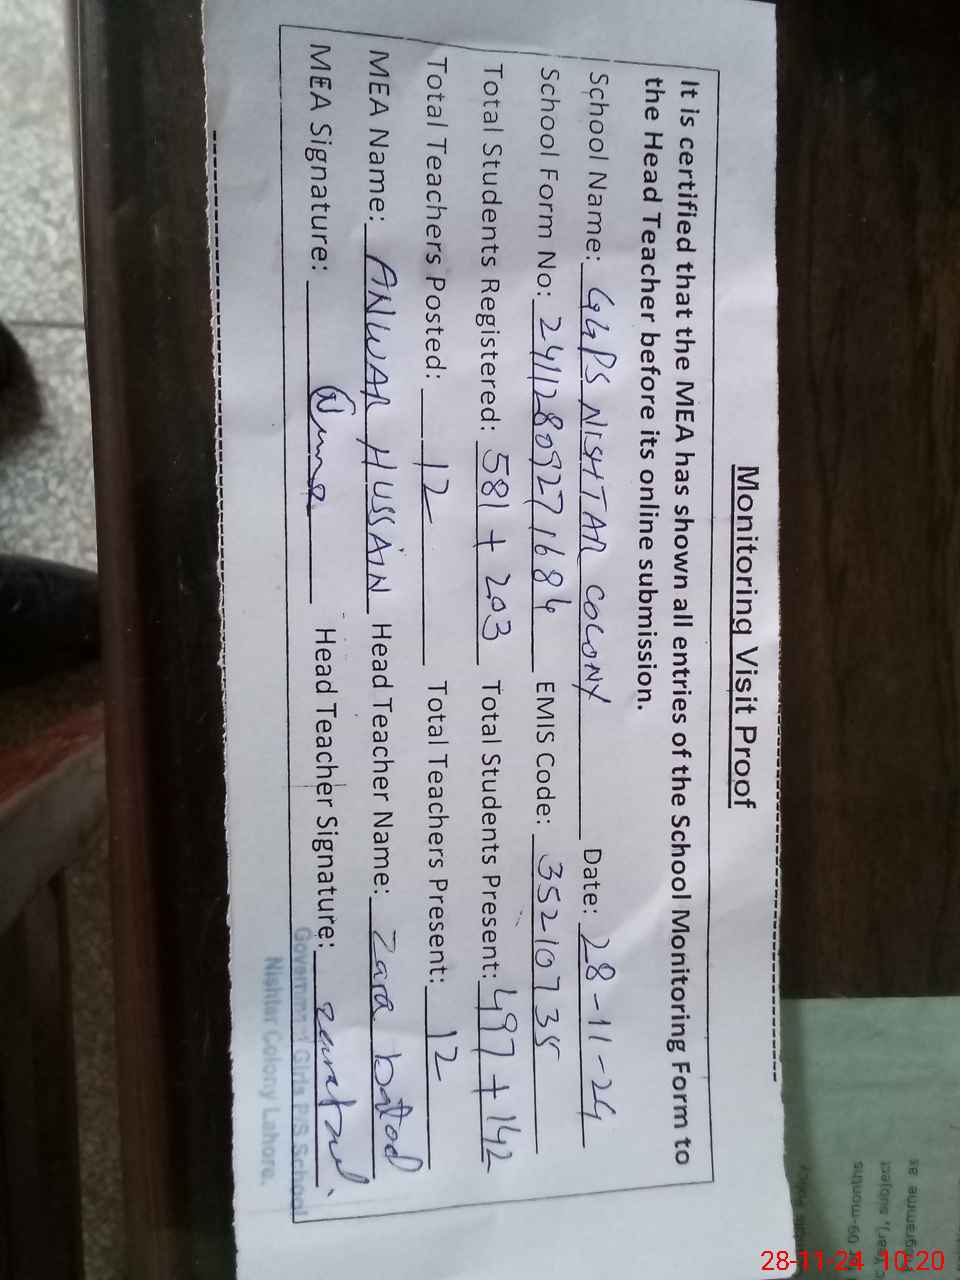 Monitoring Visit Proof
It is certified that the MEA has shown all entries of the School Monitoring Form to
the Head Teacher before its online submission.
School Name: GGPS NISHTAR COLONY Date: 28-11-24
School Form No: 24112809271684 EMIS Code: 35210735
Total Students Registered: 581 + 203 Total Students Present: 497 + 142
Total Teachers Posted: 12 Total Teachers Present: 12
MEA Name: ANWAR HUSSAIN Head Teacher Name: Zara batool
MEA Signature: Head Teacher Signature:
Government Girls P/S School
Nishter Colony Lahore.
gramme as
09-months
28-11-24 10:20